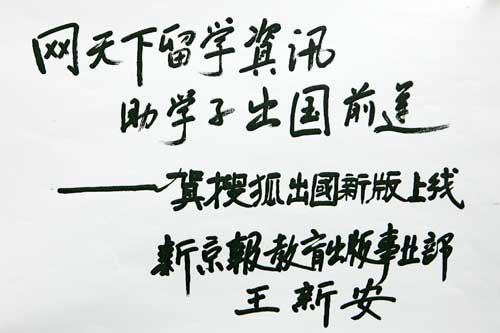 网天下留学資讯
助学子出国前送
——賀搜狐出國新版上线
新京報教育出版事业部
王新安